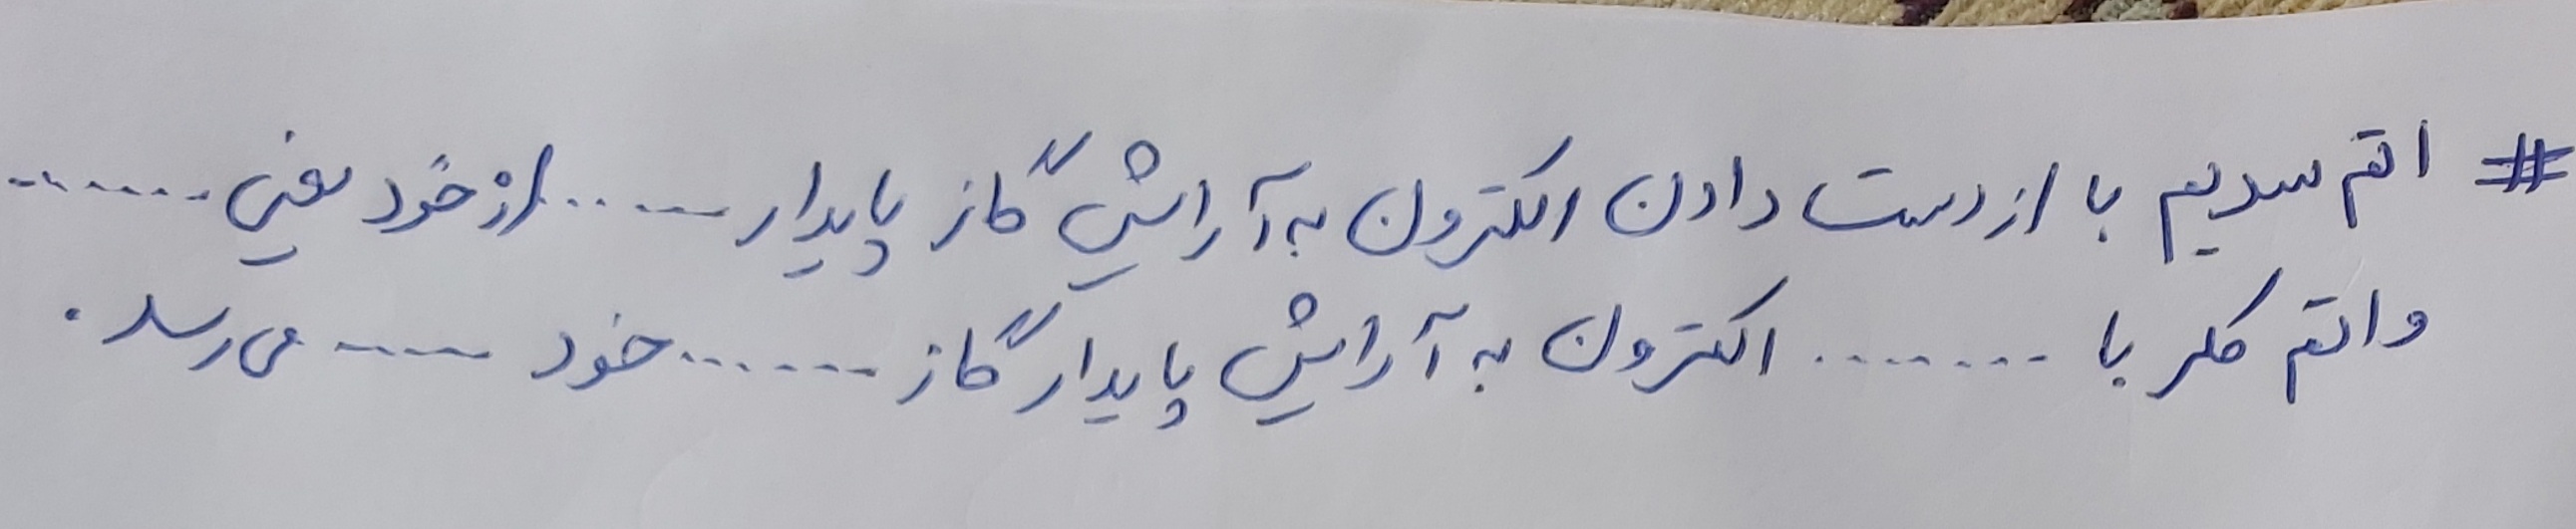 # اتم سدیم با از دست دادن الکترون به آرایش گاز پایدار ...... از خود یعنی .......
و اتم کلر با ........ الکترون به آرایش پایدار گاز ....... خود ...... می رسد .